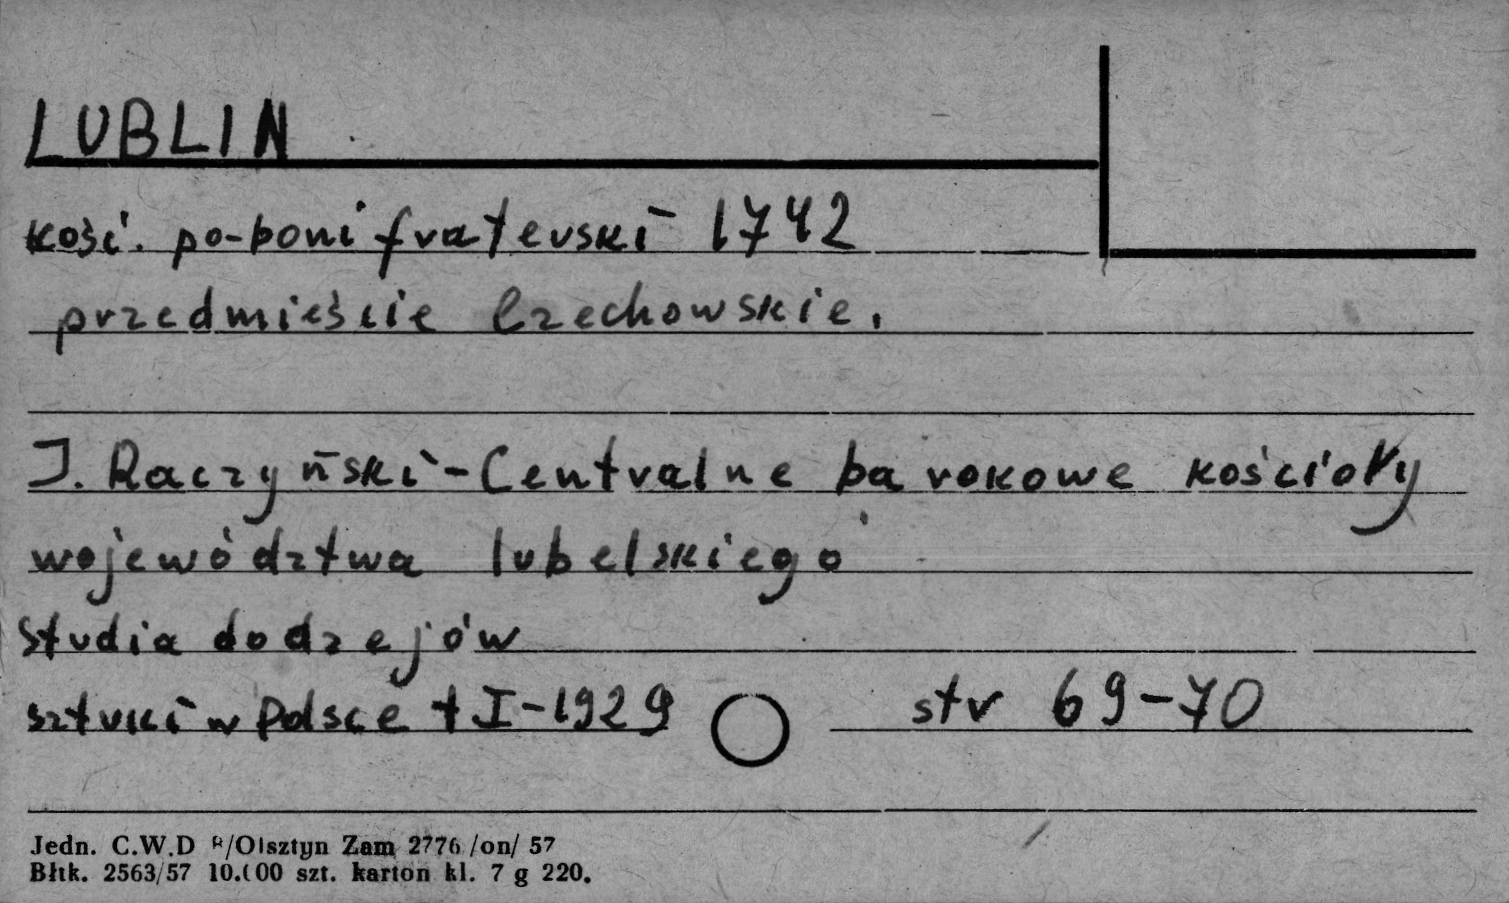 LUBLIN
kość. po-bonifraterski 1742
przedmieście Czechowskie.
J. Raczyński - Centralne barokowe kościoły
województwa lubelskiego
Studia do dzejów
sztuki w Polsce t I - 1929 str 69-70
Jedn. C.W.D R/Olsztyn Zam 2776 /on/ 57
Błtk. 2563/57 10.000 szt. karton kl. 7 g 220.